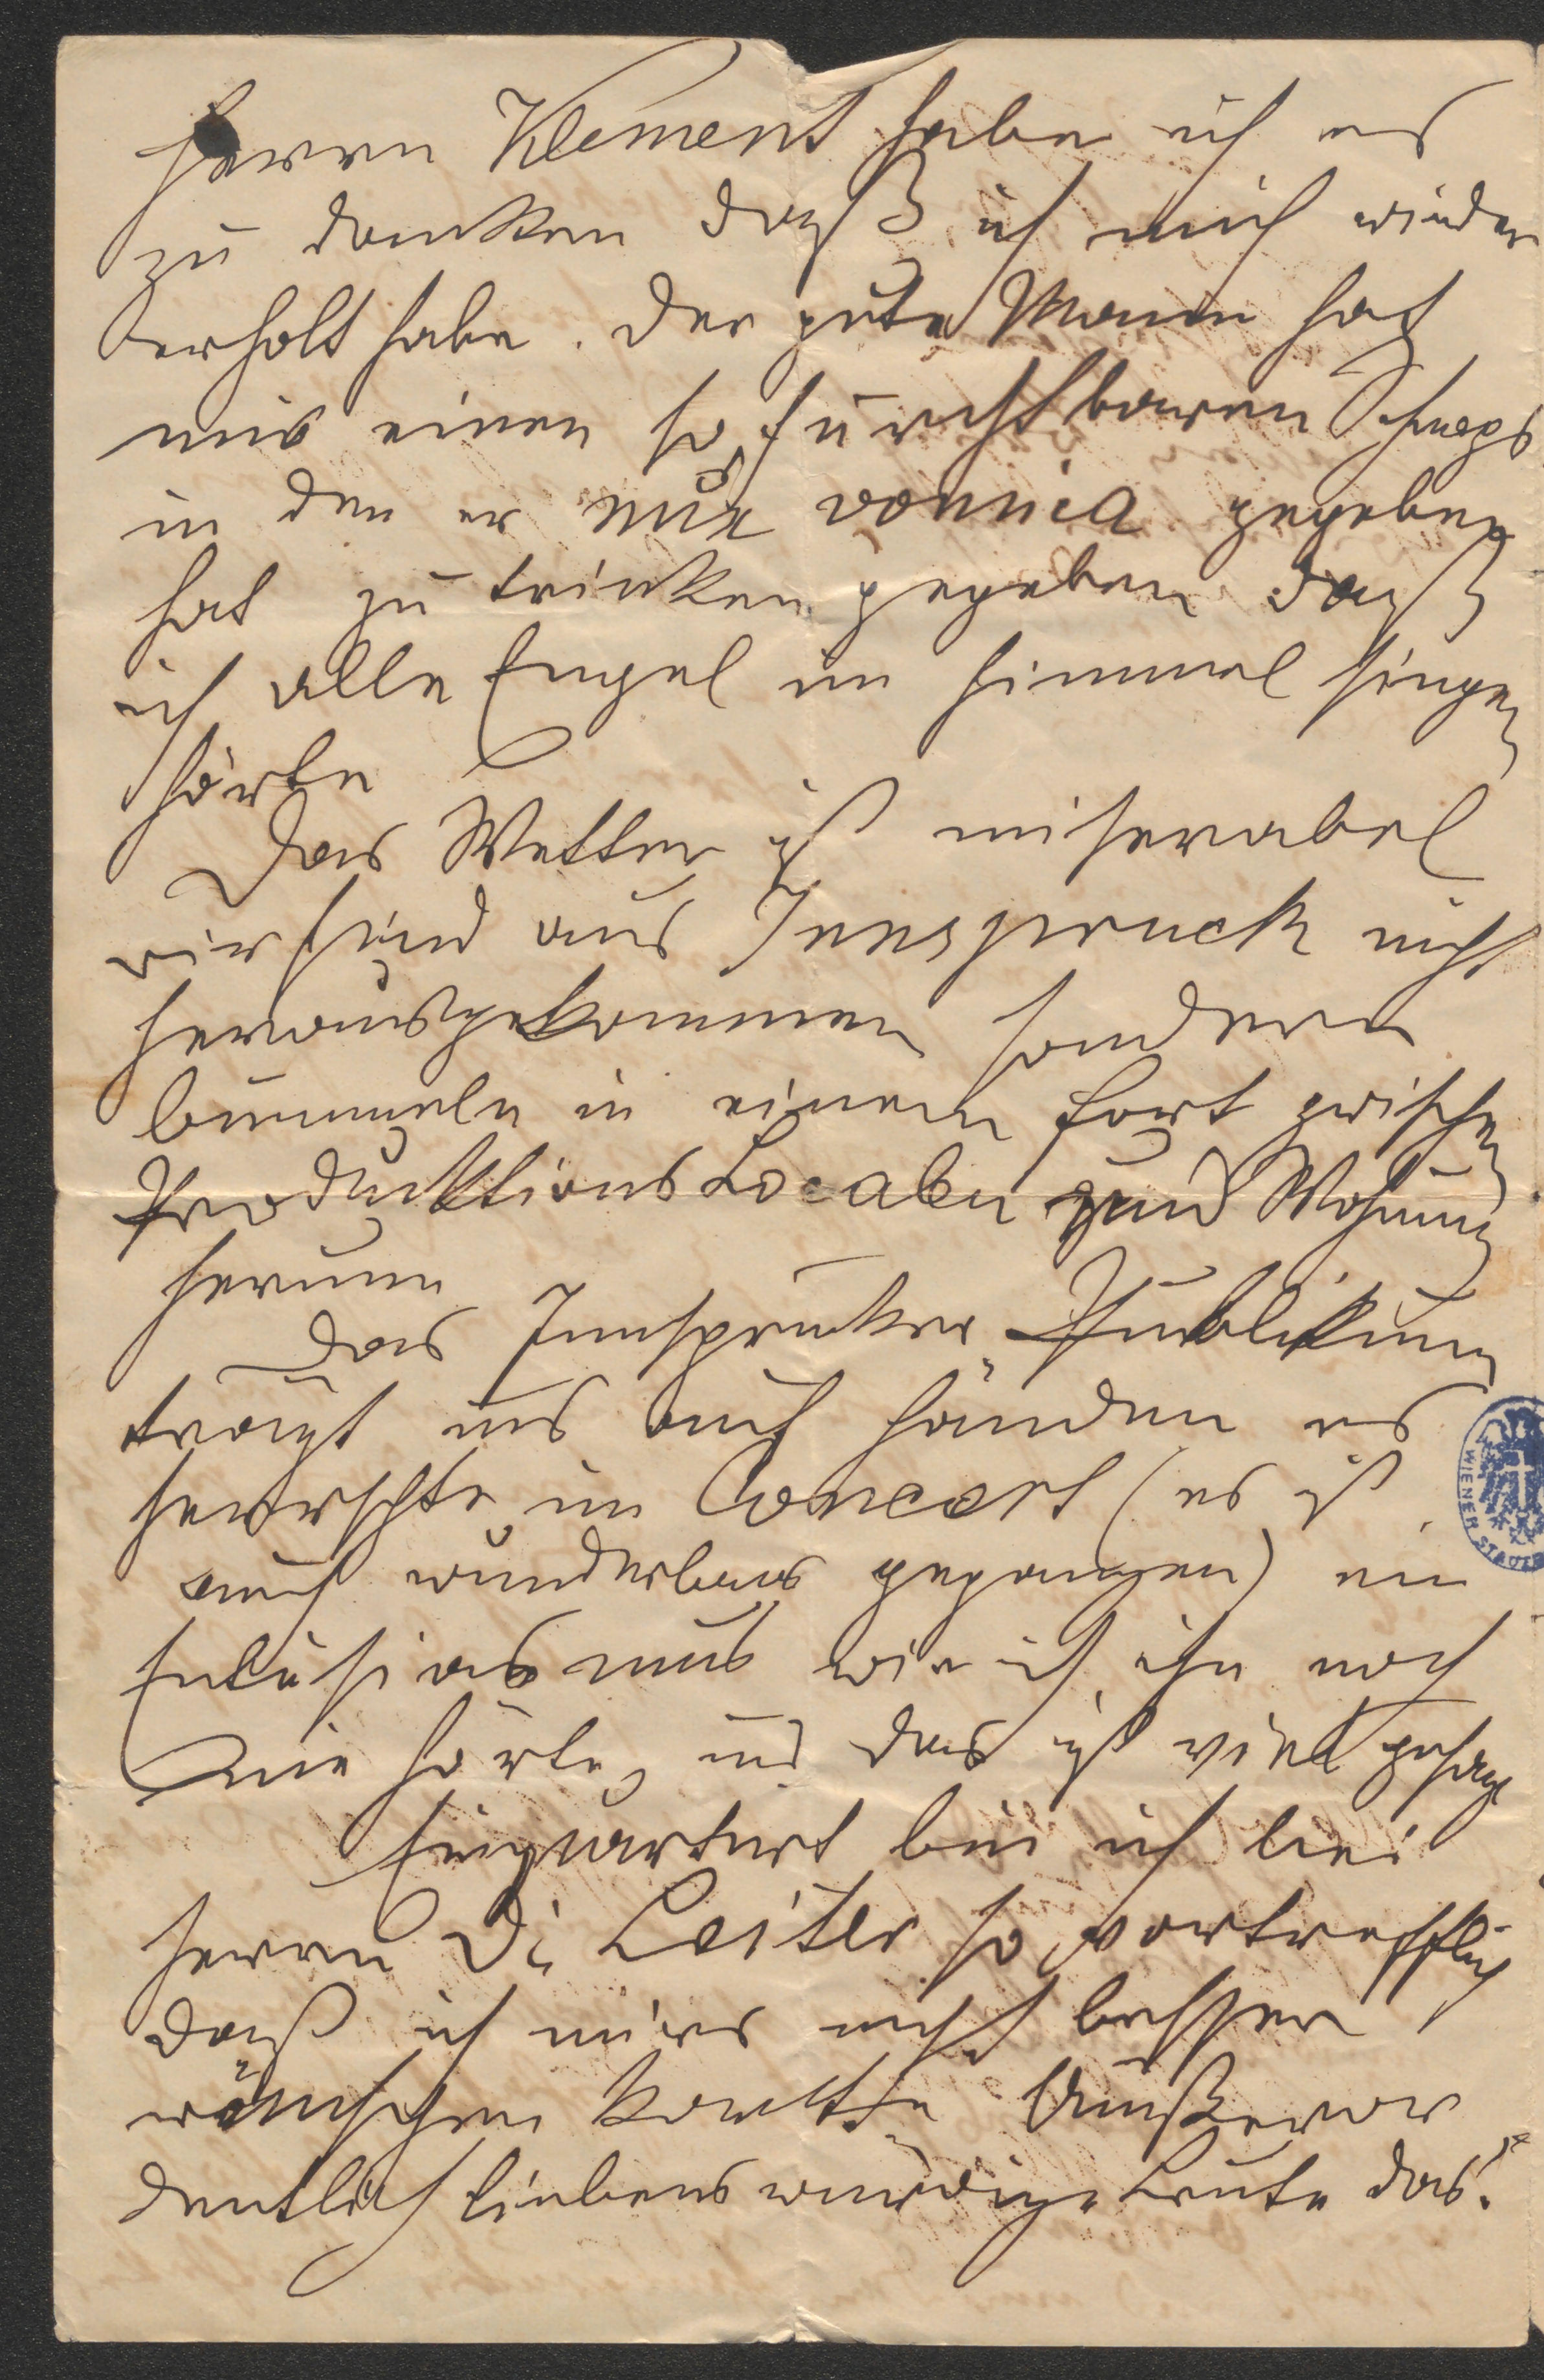 Herrn Klement habe ich es
zu danken daß ich mich wieder
erholt habe. Der gute Mann hat
mir einen so furchtbaren Schnaps
in den er nux vomica gegeben
hat zu trinken gegeben daß
ich alle Engel im Himmel singen
hörte
Das Wetter ist miserabel
wir sind aus Innspruck nicht
herausgekommen sondern
bummeln in einem fort zwischen
Produktions Localen und Wohnung
herum
Das Innsprucker Publikum
trägt uns auf Händen es
herrschte im Concert (es ist
auch wunderbar gegangen) ein
Entusiasmus wie ich ihn noch
nie hörte, und das ist viel gesagt
Einquartirt bin ich bei
Herrn Di Leiter so vortrefflich
daß ich mirs nicht besser
wünschen konnte Außeror
dentlich liebenswürdige Leute das.
WIENER STADTB